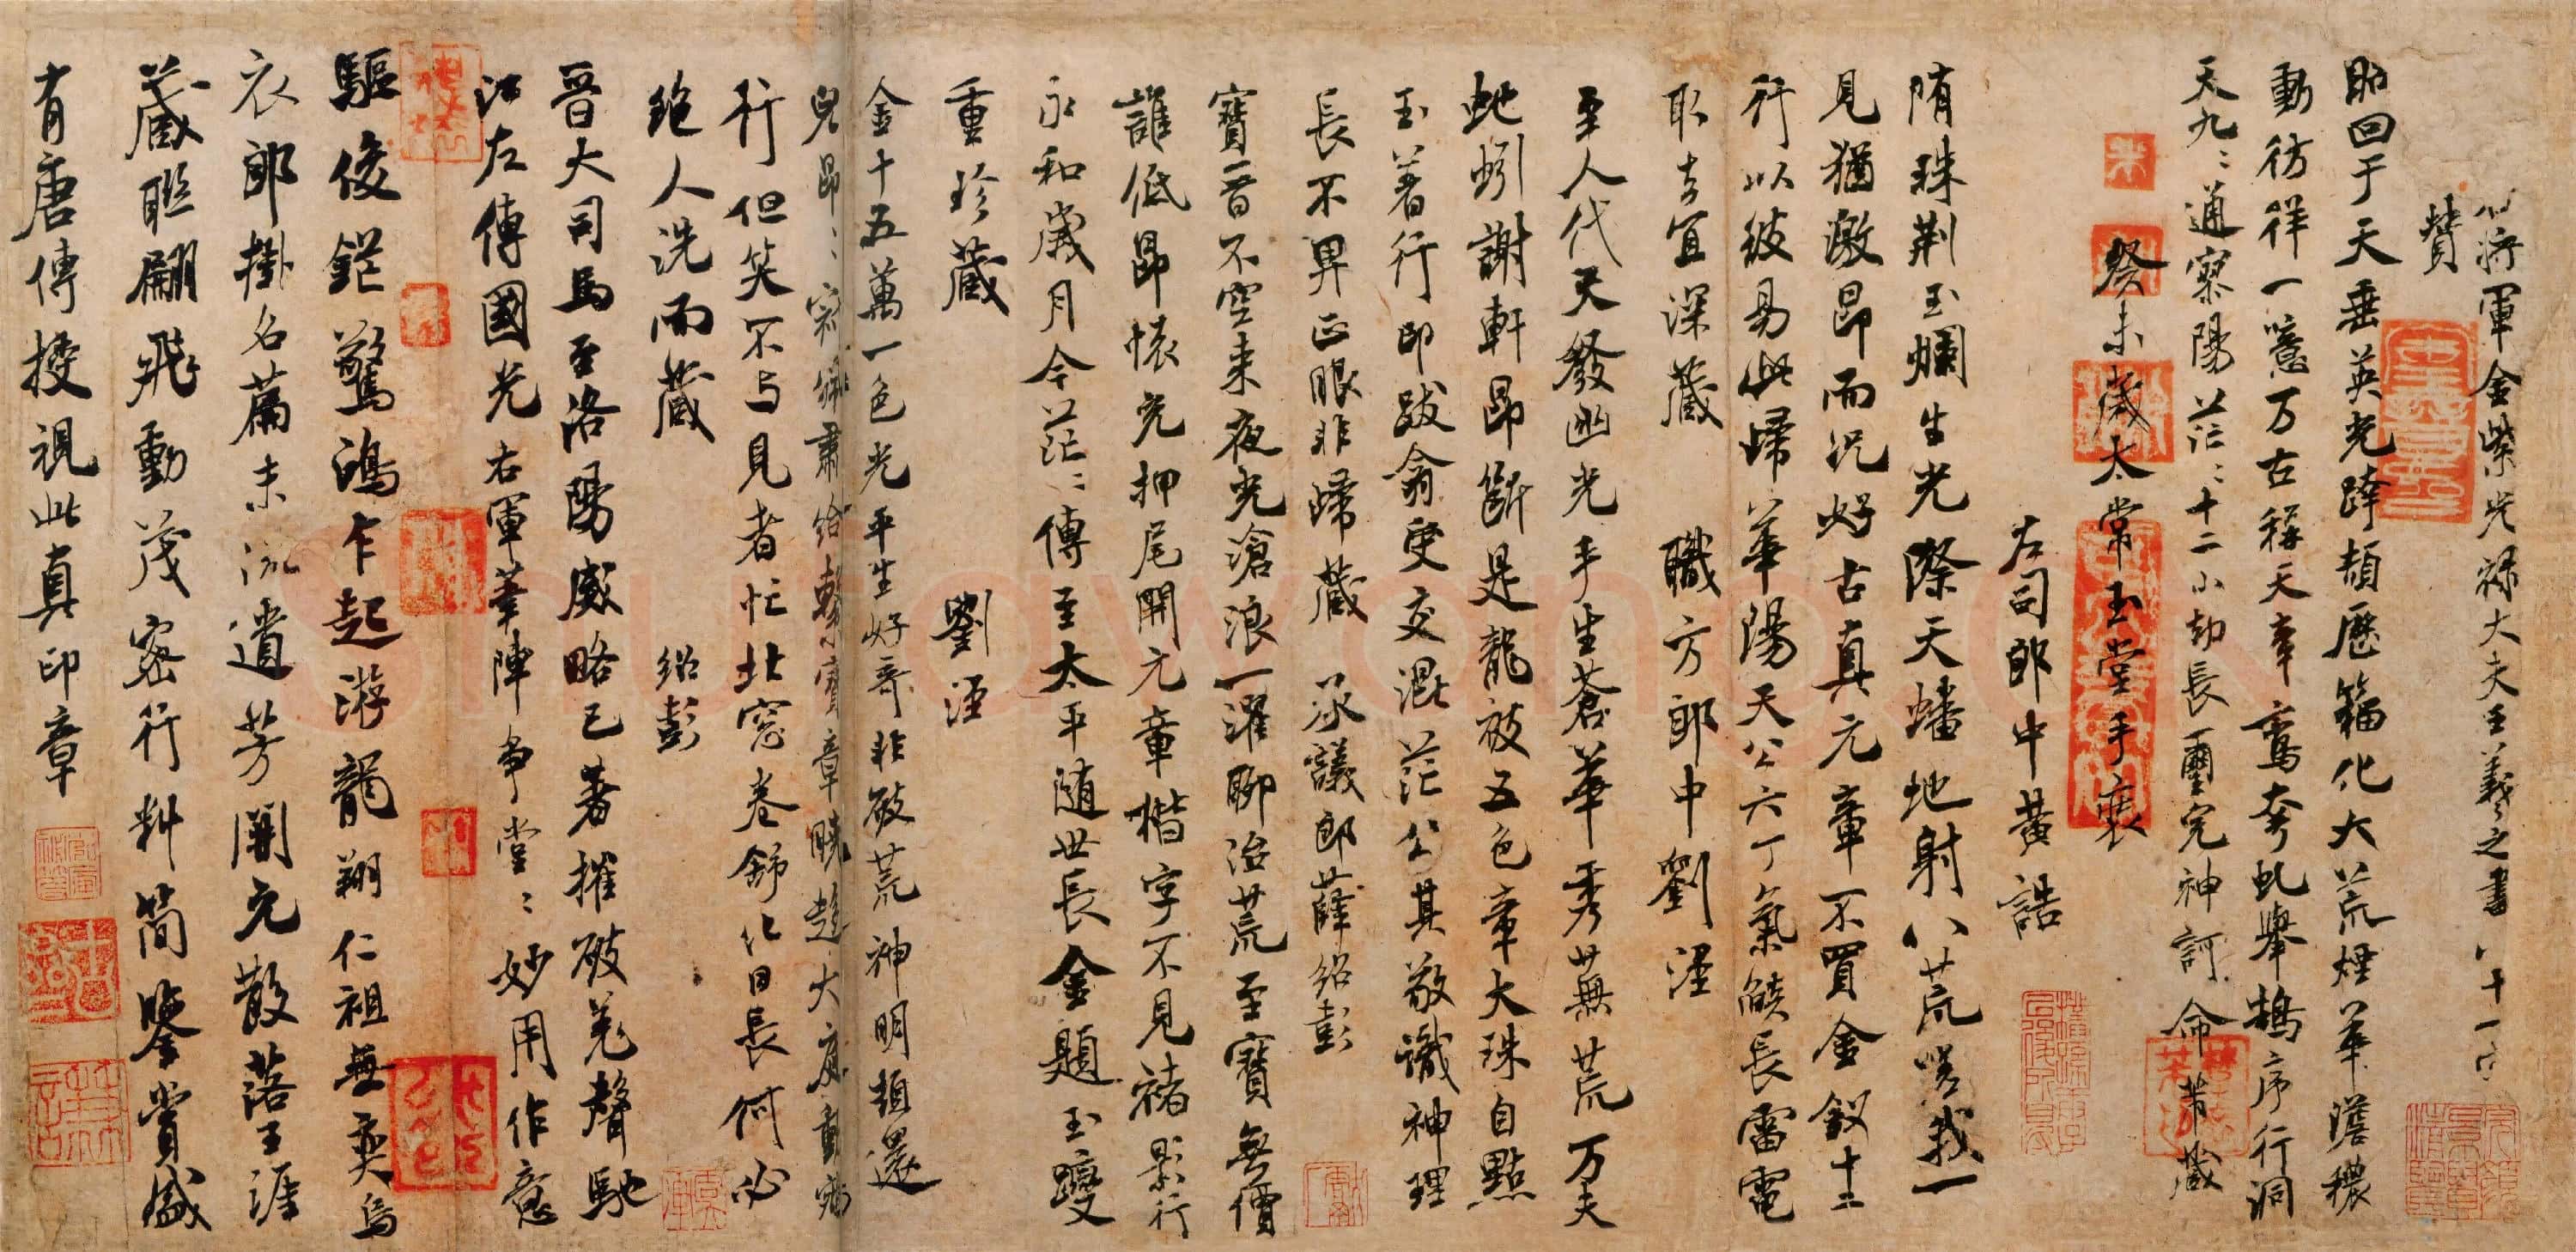 右將軍金紫光祿大夫王羲之書八十一字
贊
昭回于天垂英光跨頡歷籀化大荒煙華澹穠
動彷徉一噫万古稱天章鸞夸虬舉鵠序行洞
天九〻通寥陽茫〻十二小劫長璽完神訶命芾藏
癸未歲太常玉堂手裝
左司郎中黃誥
隋珠荆玉爛生光際天蟠地射八荒嗟我一
見猶激昂而況好古真元章不買金釵十二
行以彼易此歸華陽天公六丁氣燄長雷電
取去宜深藏 職方郎中劉涇
至人代天發幽光手生蒼華秀蕪荒万夫
虵蚓謝軒昂斷是龍被五色章大珠自點
玉著行印跋翕受交混茫公其敬識神理
長不畀正眼非歸藏 承議郎薛紹彭
寶晉不空来夜光滄浪一濯聊治荒至寶無價
誰低昂懷充押尾開元章楷字不見褚影行
永和歲月今茫〻傳至太平随世長金題玉躞
重珍藏 劉涇
金十五萬一色光平生好奇非破荒神明頓還
兒昻〻
行但笑不与見者忙北窓卷舒化日長何必
絶人洗而藏 紹彭
晉大司馬至洛陽威略已著摧破羌聲馳
江左傳國光右軍筆陣争堂〻妙用作意
驅俊鋩驚鴻乍起游龍翔仁祖無奕烏
衣郎掛名篇末流遺芳開元散落王涯
藏聮翩飛動茂密行料简鑒賞盛
有唐傳授視此真印章